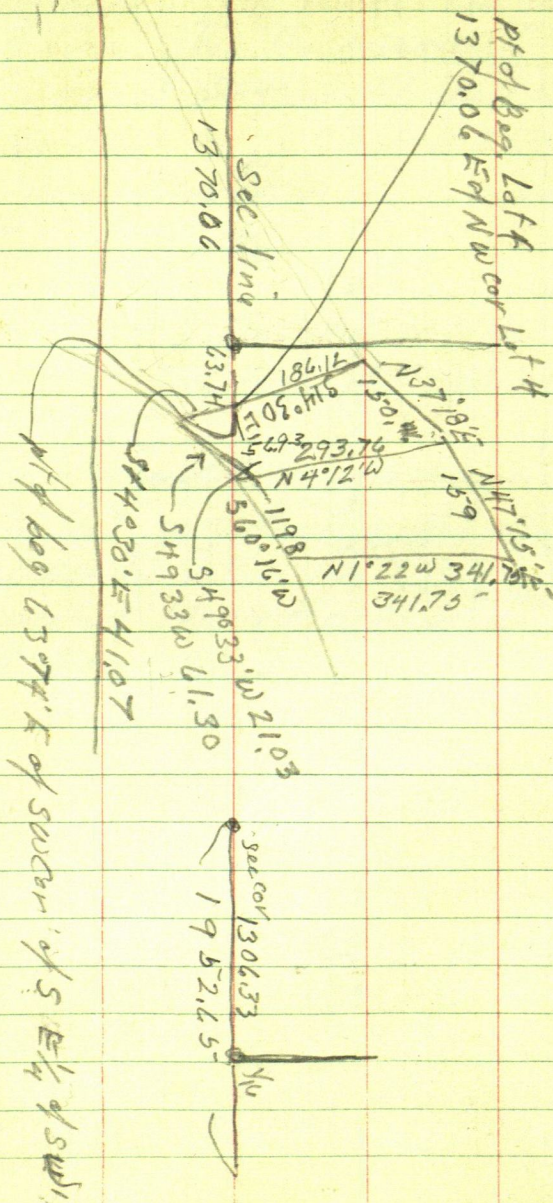 Pt of Beg. Lot 4
1370.06 E of NW cor Lot 4
Sec-line
1370.06
63.74
186.17
S14°30'E
150.
N37°18'E
N47°15'E
159
56.93
293.76
N4°12'W
119.8
S60°16'W
N1°22W 341.75
341.75
S49°33'W 21.03
S49 33W 61.30
S14°30'E 41.07
pt of beg 63.74'E of SW cor of SE 1/4 of SW
sec cor
1306.33
1952.65
1/16